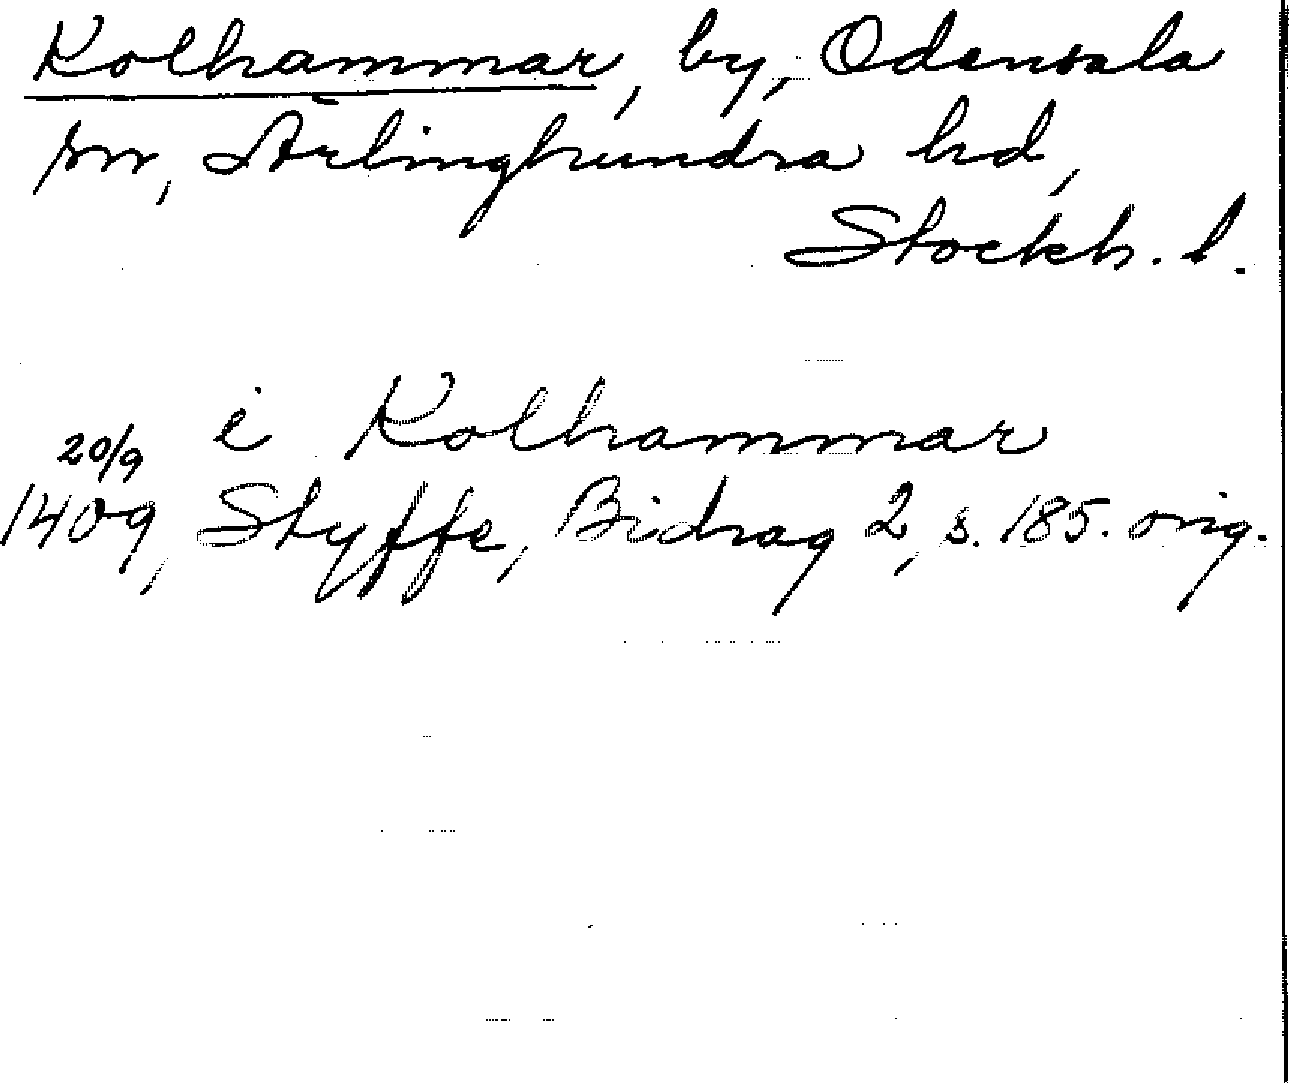 Kolhammar, by, Odensala
sn, Ärlinghundra hd,
Stockh. l.
i Kolhammar
20/9
1409, Styffe, Bidrag 2, s. 185. orig.